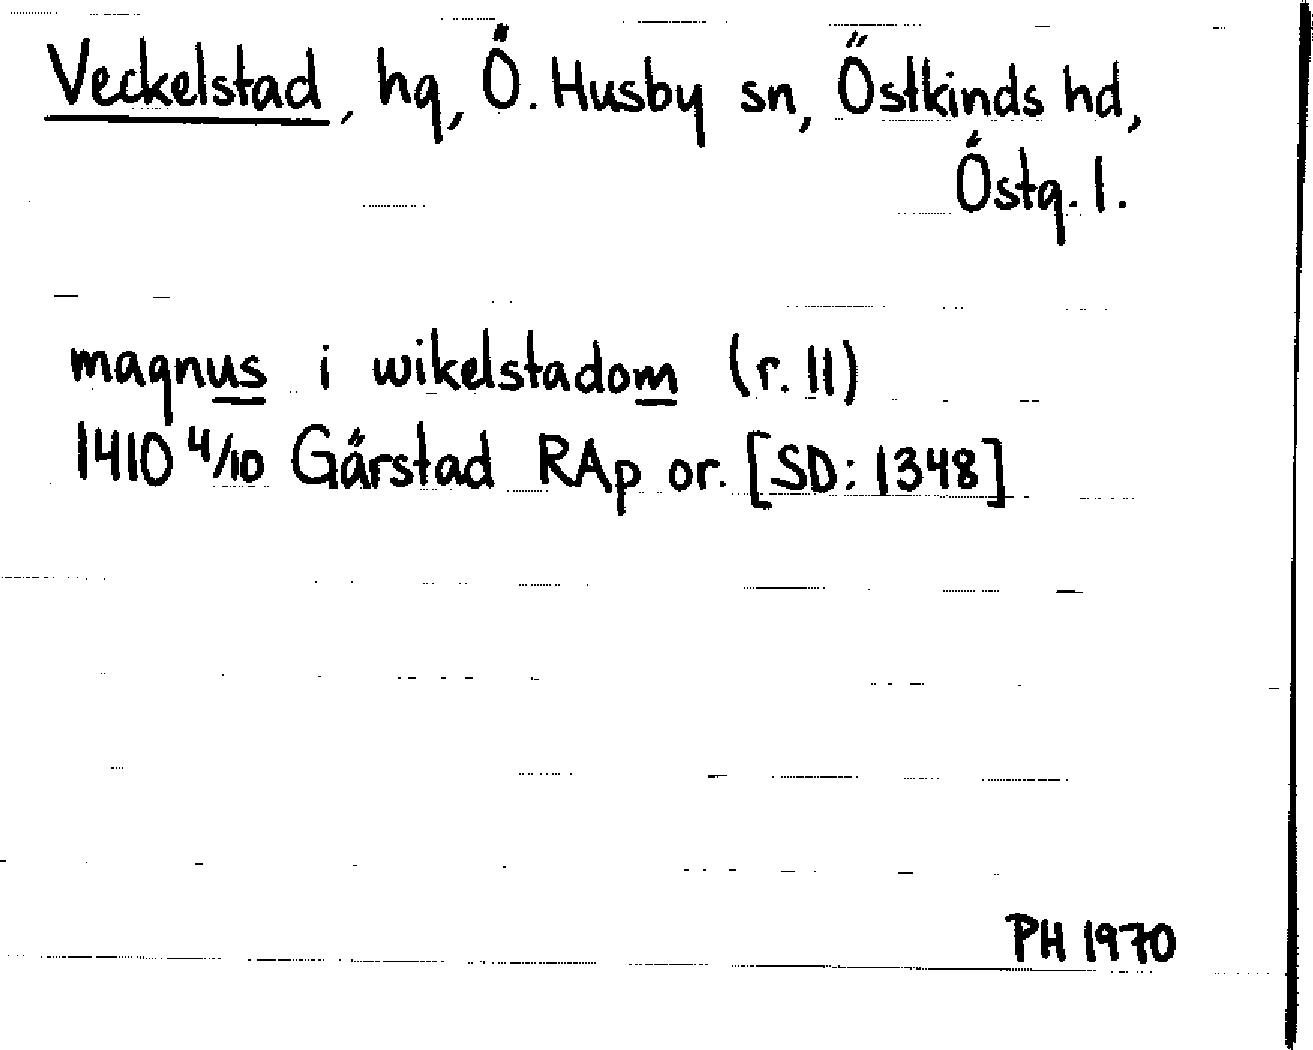 Veckelstad, hg, Ö. Husby sn, Östkinds hd,
Östg. l.
magnus i wikelstadom (r. 11)
1410 4/10 Gårstad RAp or. [SD: 1348]
PH 1970